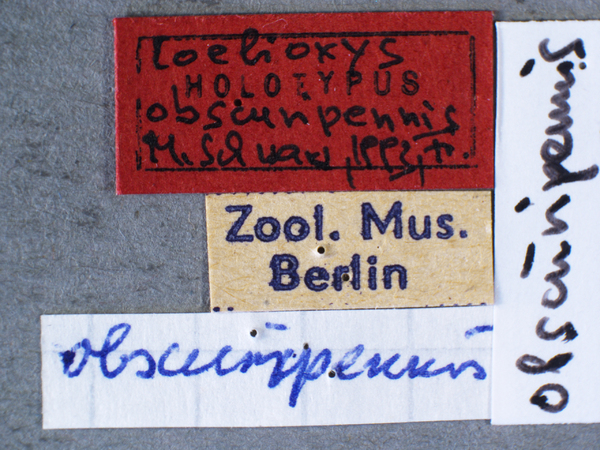 Coelioxys
HOLOTYPUS
obscuripennis
M. Schwarz, 1993, ♀.
Zool. Mus.
Berlin
obscuripennis
obscuripennis